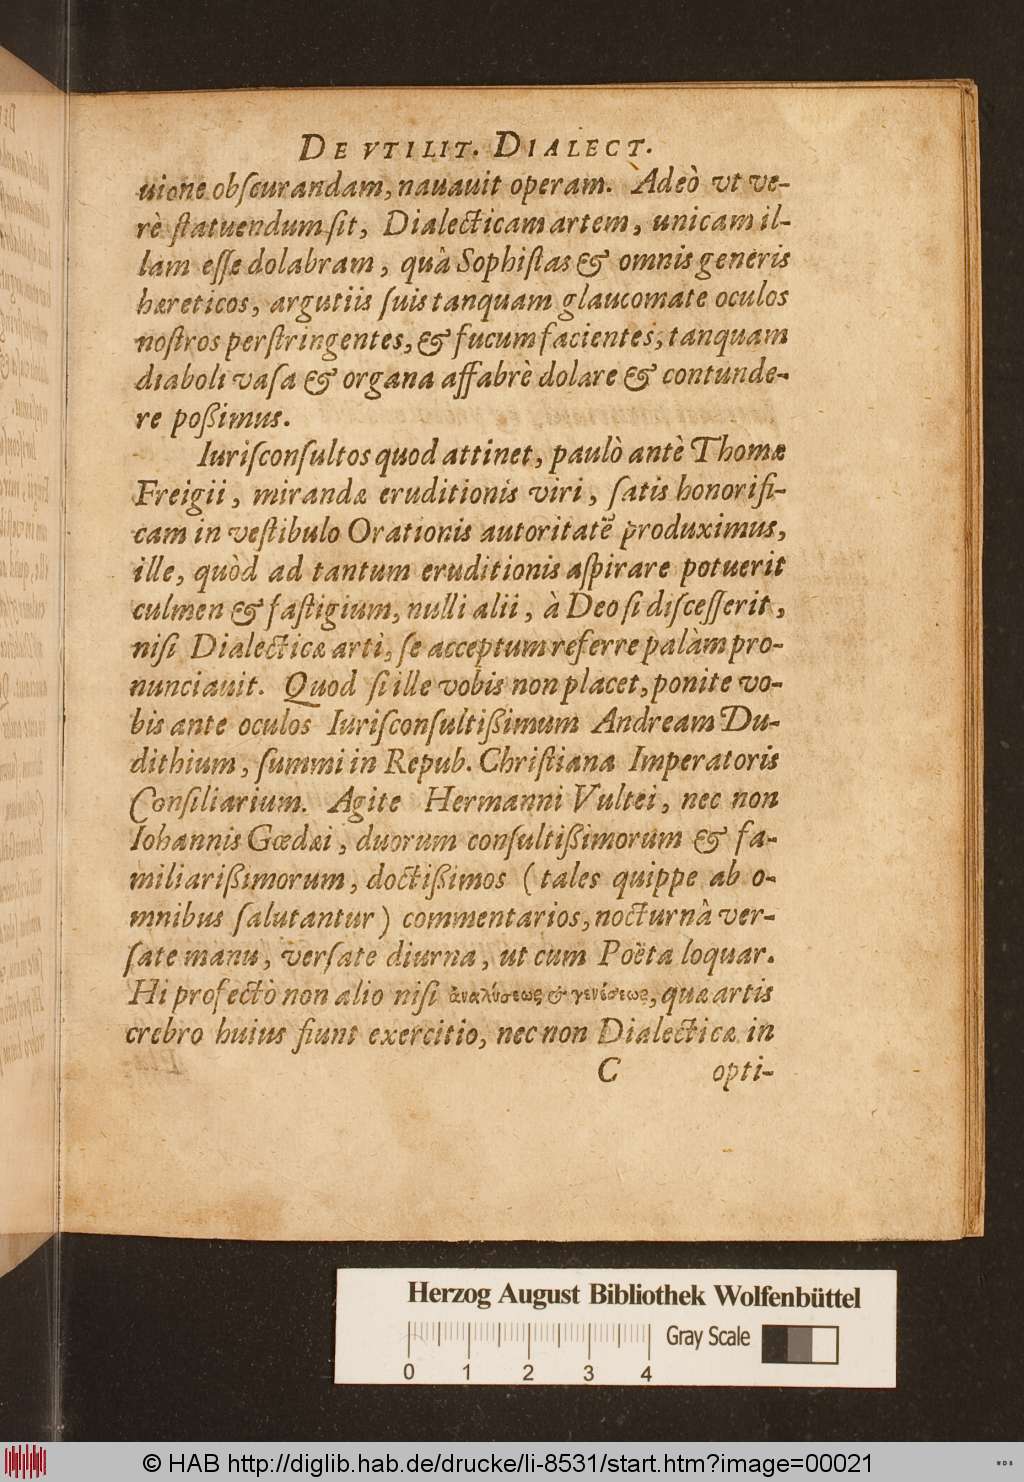 DE VTILIT. DIALECT.
uione obſcurandam, nauauit operam. Adeò vt ve-
rè ſtatuendum ſit, Dialecticam artem, unicam il-
lam eſſe dolabram, quà Sophiſtas & omnis generis
hæreticos, argutiis ſuis tanquam glaucomate oculos
noſtros perſtringentes, & fucum facientes, tanquam
diaboli vaſa & organa affabrè dolare & contunde-
re poßimus.
Iuriſconſultos quod attinet, paulò antè Thomæ
Freigii, mirandæ eruditionis viri, ſatis honorifi-
cam in veſtibulo Orationis autoritatē produximus,
ille, quòd ad tantum eruditionis aſpirare potuerit
culmen & faſtigium, nulli alii, à Deo ſi diſceſſerit,
niſi Dialecticæ arti, ſe acceptum referre palàm pro-
nunciauit. Quod ſi ille vobis non placet, ponite vo-
bis ante oculos Iuriſconſultißimum Andream Du-
dithium, ſummi in Repub. Chriſtiana Imperatoris
Conſiliarium. Agite Hermanni Vultei, nec non
Iohannis Gœdæi, duorum conſultißimorum & fa-
miliarißimorum, doctißimos (tales quippe ab o-
mnibus ſalutantur) commentarios, nocturnâ ver-
ſate manu, verſate diurna, ut cum Poëta loquar.
Hi profectò non alio niſi ἀναλύσεως & γενέσεως, quæ artis
crebro huius fiunt exercitio, nec non Dialecticæ in
C opti-
Herzog August Bibliothek Wolfenbüttel
Gray Scale
0 1 2 3 4
© HAB http://diglib.hab.de/drucke/li-8531/start.htm?image=00021